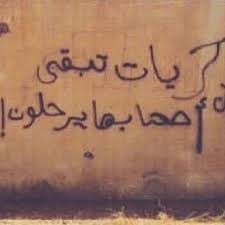 ذكريات تبقى
أصحابها يرحلون!